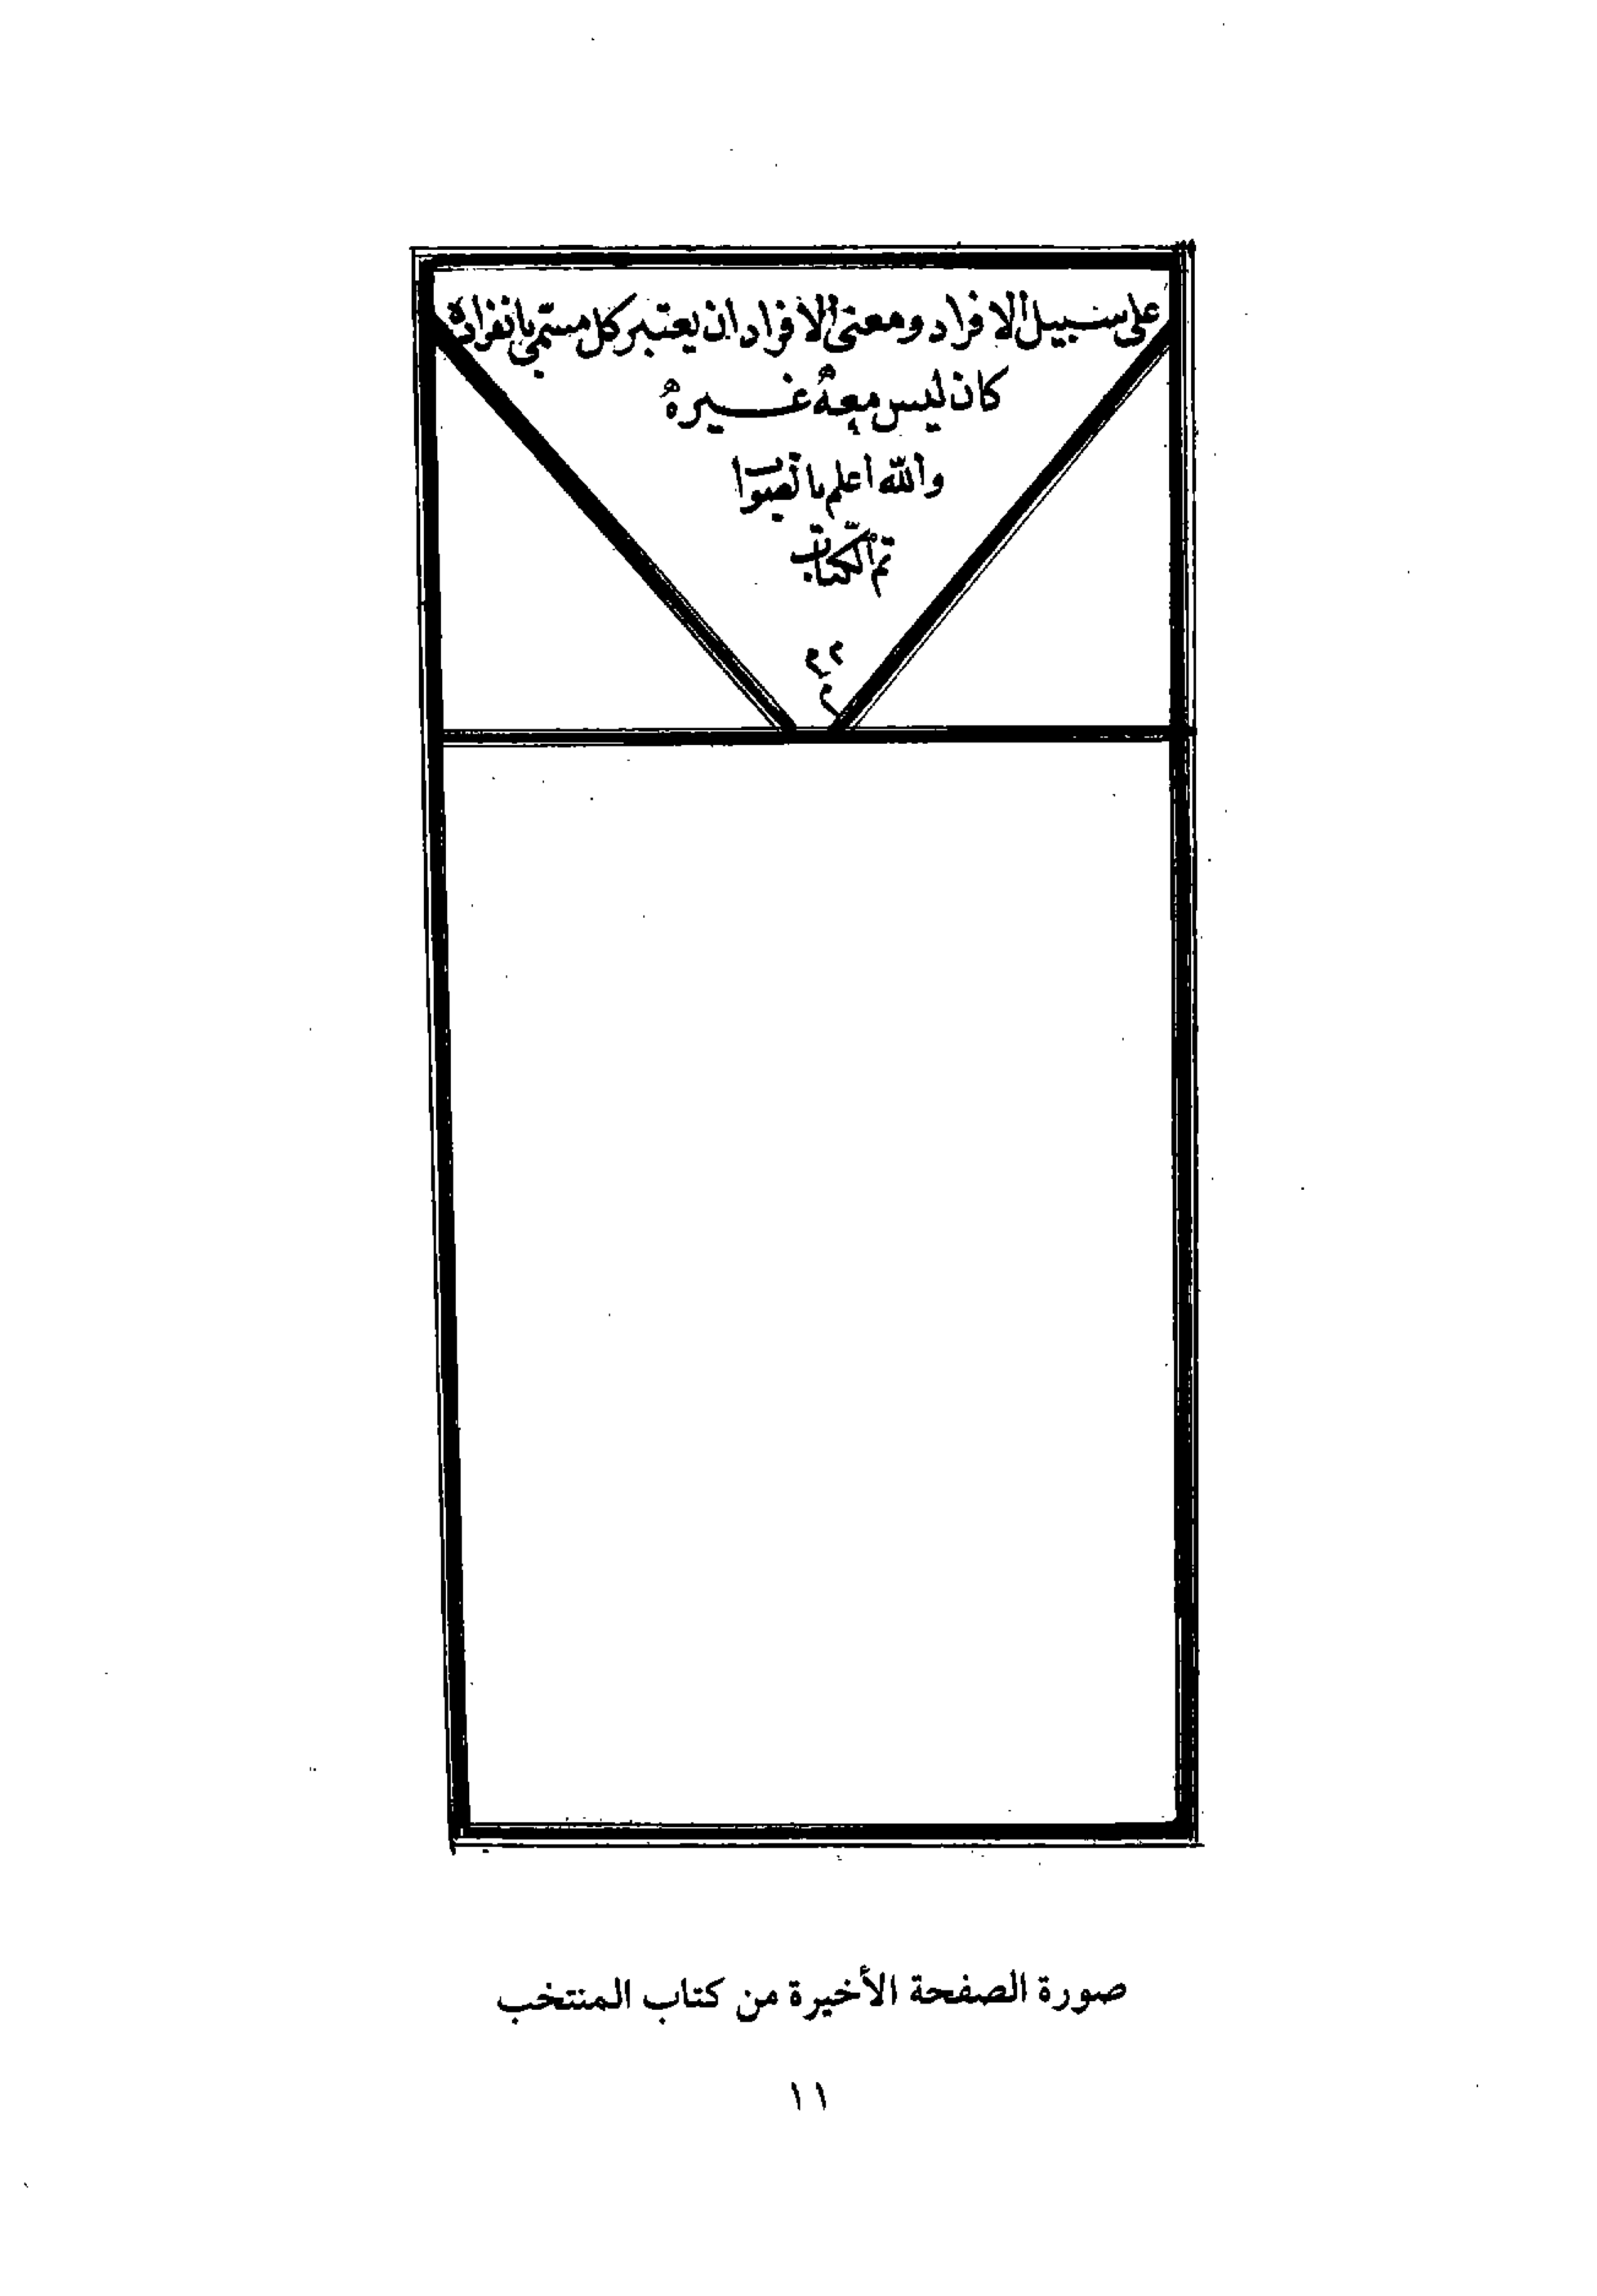 على سبيل الافراد ومعنى الافراد ان يعتبر كل مسمّى بانفراده
كان ليس معهُ غيرهُ
والله اعلم بالصّواب
تم الكتاب
صورة الصفحة الأخيرة من كتاب المنتخب
١١